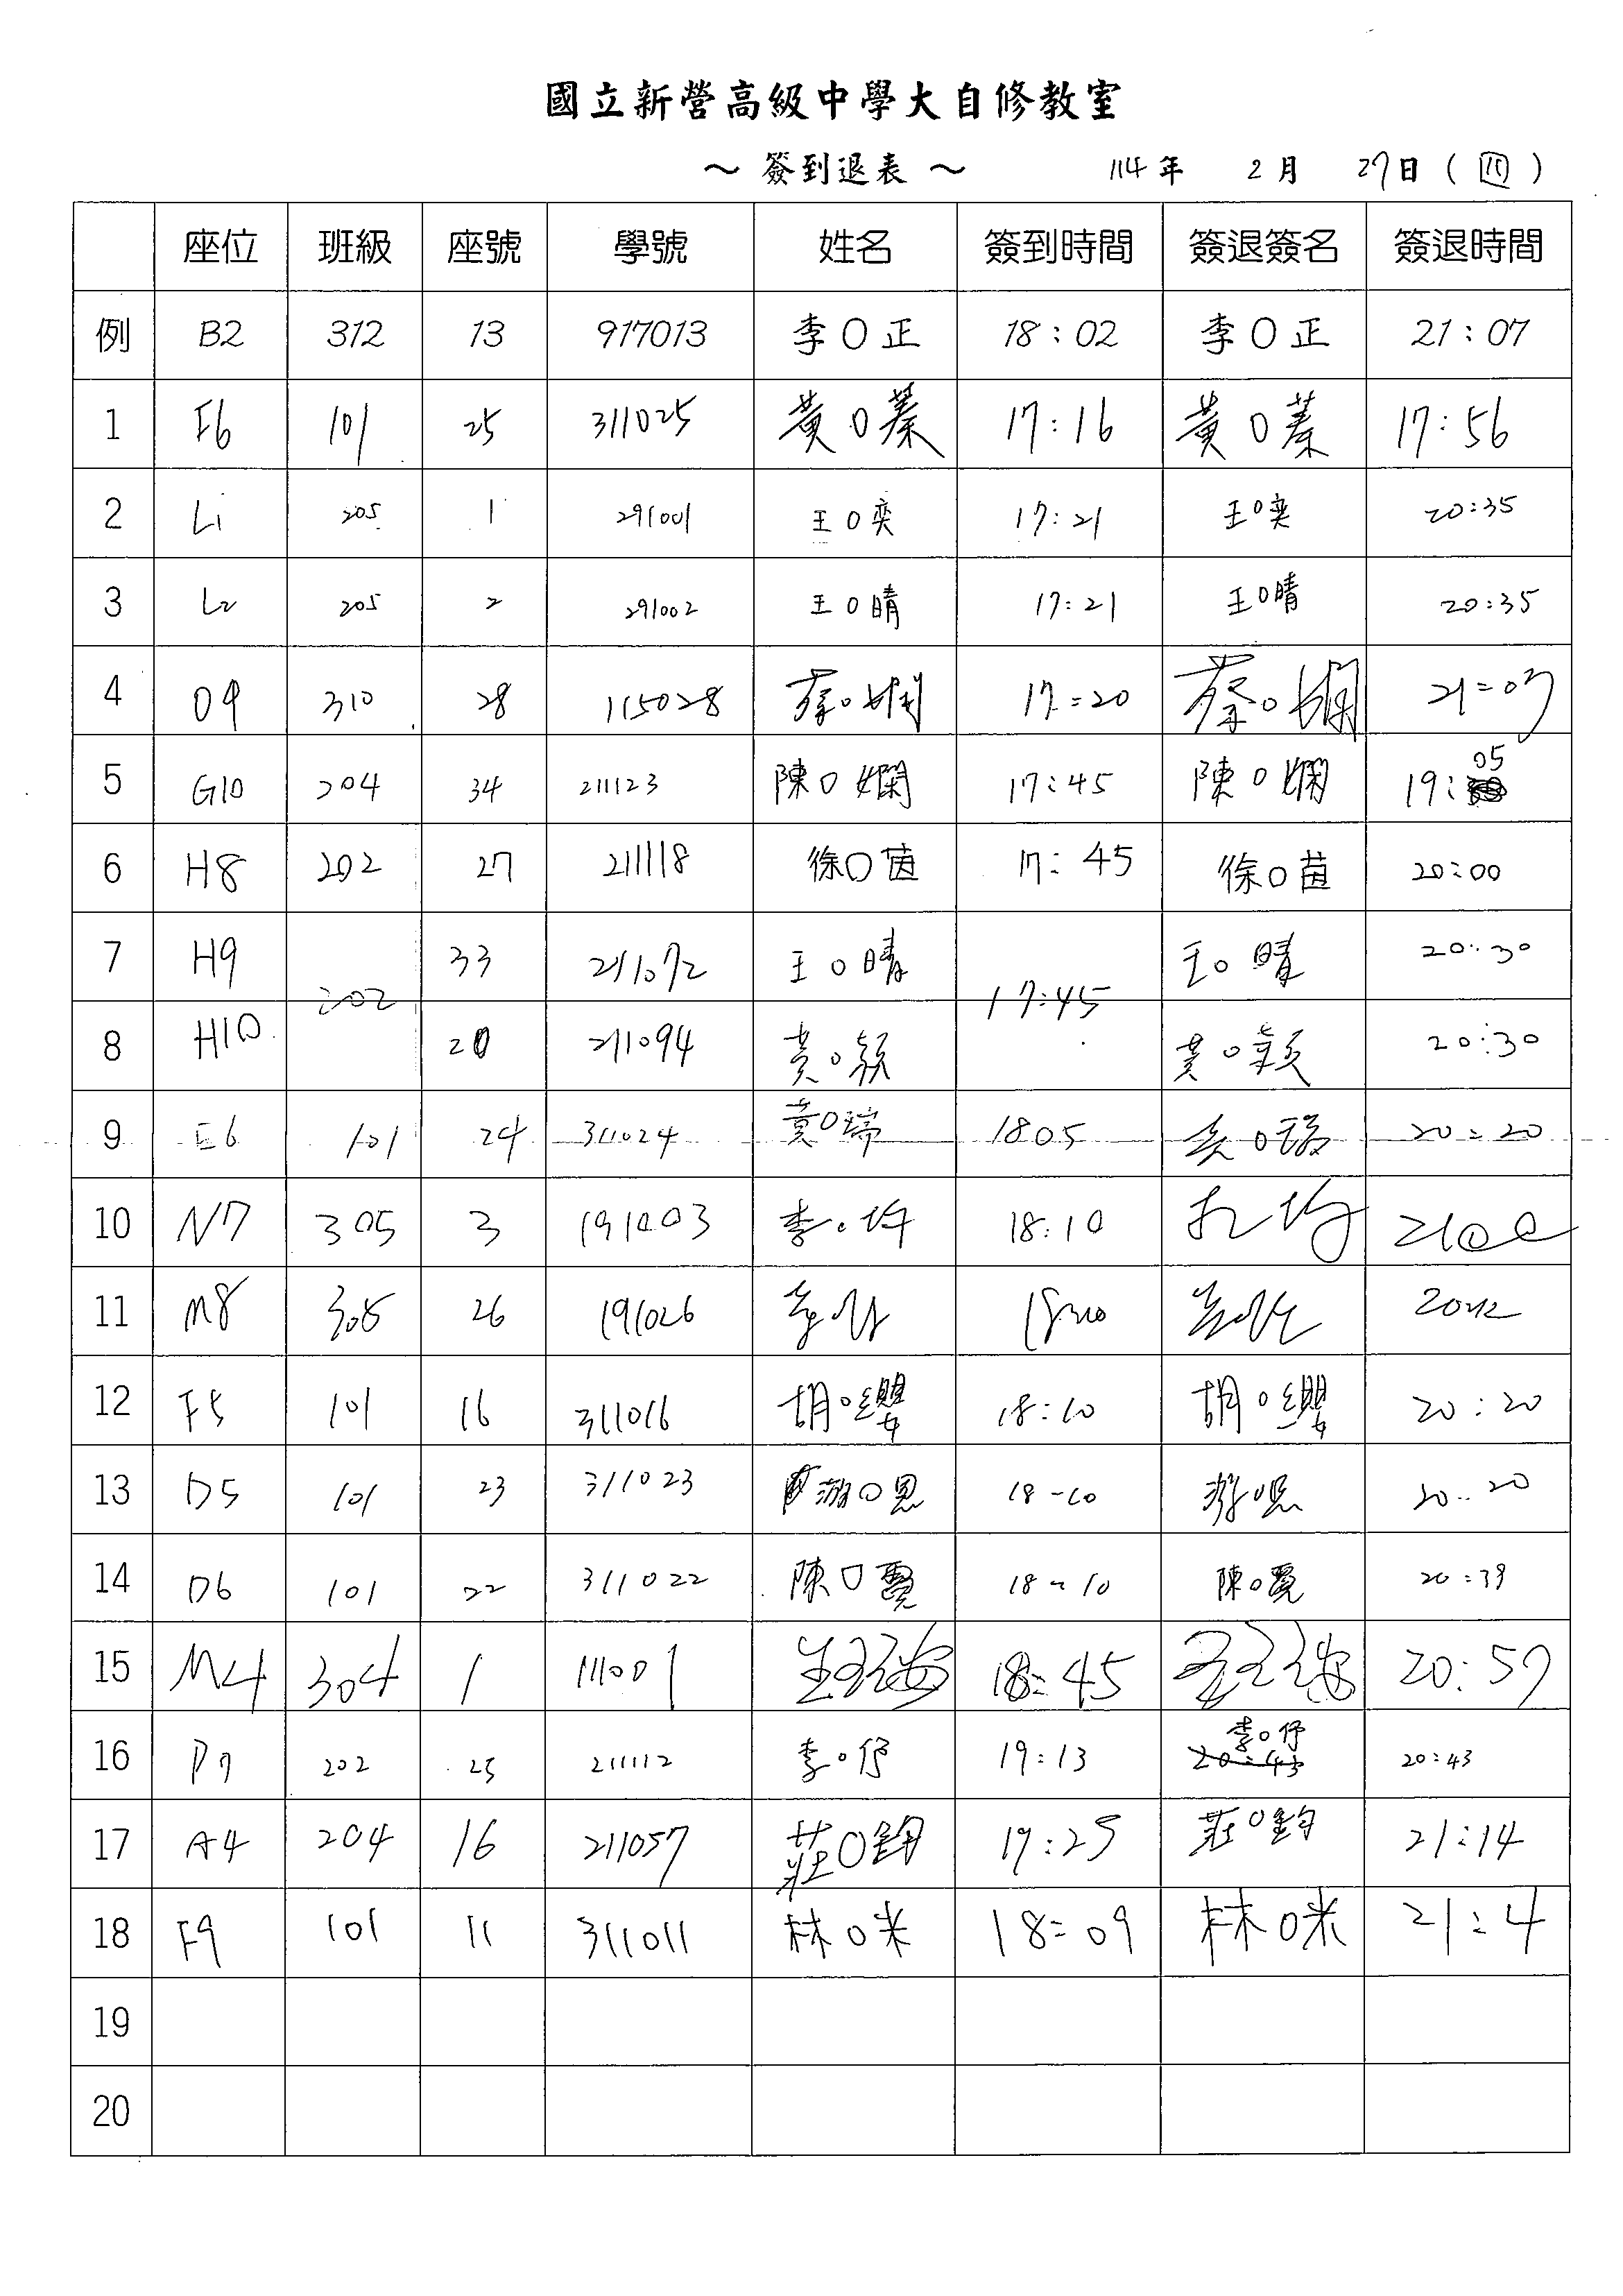 國立新營高級中學大自修教室
～ 簽到退表 ～ 114 年 2 月 27 日 ( 四 )
座位 班級 座號 學號 姓名 簽到時間 簽退簽名 簽退時間
例 B2 312 13 917013 李〇正 18:02 李〇正 21:07
1 F6 101 25 311025 黃〇蓁 17:16 黃〇蓁 17:56
2 L1 205 1 291001 王〇奕 17:21 王〇奕 20:35
3 L2 205 2 291002 王〇晴 17:21 王〇晴 20:35
4 O9 310 28 115028 蔡〇嫻 17:20 蔡〇嫻 21:07
5 G10 204 34 211123 陳〇嫻 17:45 陳〇嫻 19:05
6 H8 202 27 211118 徐〇茵 17:45 徐〇茵 20:00
7 H9 202 33 211072 王〇晴 17:45 王〇晴 20:30
8 H10 20 211094 黃〇穎 黃〇穎 20:30
9 E6 101 24 311024 黃〇瑞 1805 黃〇瑞 20:20
10 N7 305 3 191003 李〇 18:10 2100
11 M8 305 26 191026
12 F5 101 16 311016 胡〇纓 18:10 胡〇纓 20:20
13 D5 101 23 311023 游〇恩 18-10 游〇恩 20:20
14 D6 101 22 311022 陳〇覽 18-10 陳〇覽 20:39
15 M4 304 1 111001 18:45 20:57
16 P7 202 25 211112 李〇伃 19:13 李〇伃 20:43 20:43
17 A4 204 16 211057 莊〇鈞 19:25 莊〇鈞 21:14
18 F9 101 11 311011 林〇米 18:09 林〇咪 21:4
19
20